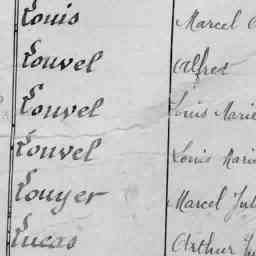 Louis Marcel
Louvel Alfred
Louvel Louis Marie
Louvel Louis Marie
Louyer Marcel Jul
Lucas Arthur